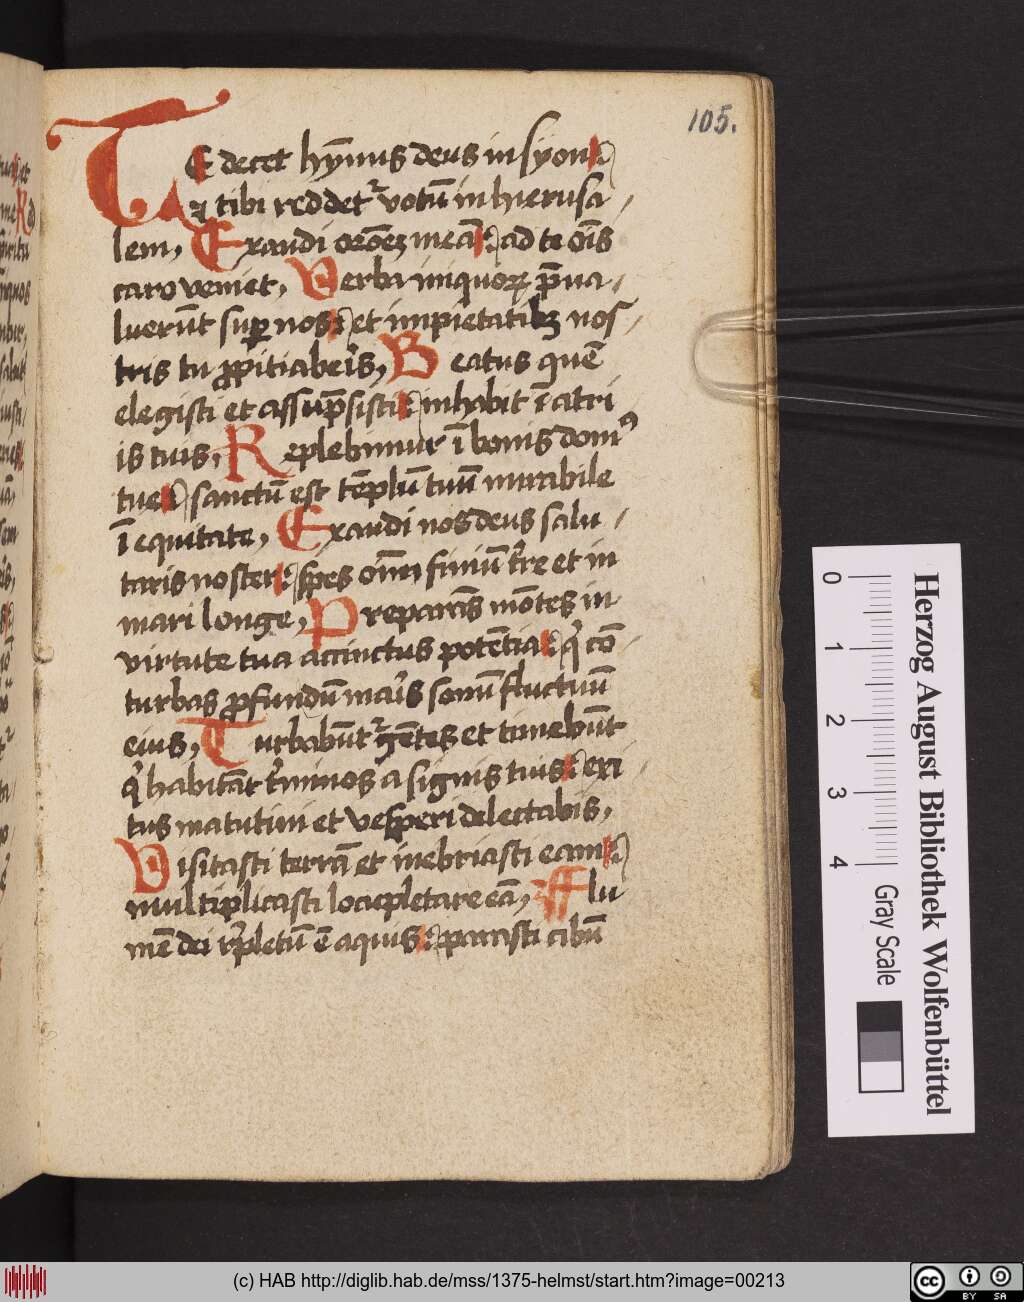 105.
TE decet hȳnus deus in syon:
⁊ tibi reddet᷑ votū in hierusa/
lem, Exaudi oroēz meā: ad te oīs
caro veniet, Verba iniquoꝝ p̄ua/
luerūt suꝑ nos: et impietatibꝫ nos/
tris tu ꝓpitiaberis, Beatus quē
elegisti et assūpsisti: inhabit ī atri
is tuis, Replebimur ī bonis domꝰ
tue: sanctū est tēplū tuū mirabile
ī equitate, Exaudi nos deus salu/
taris noster: spes oīm finiū tr̄e et in
mari longe, Preparās mōtes in
virtute tua accinctus potētia: q̇ cō/
turbas ꝓfundū maris sonū fluctuū
eius, Turbabūt᷑ gētes et timebūt
q̇ habitāt t̄minos a signis tuis: exi/
tus matutini et vesperi delectabis,
Visitasti terrā et inebriasti eam:
multiplicasti locupletare eā, fflu
mē dei rēpletū ē aquis: parasti cibū
Herzog August Bibliothek Wolfenbüttel
0 1 2 3 4
Gray Scale
(c) HAB http://diglib.hab.de/mss/1375-helmst/start.htm?image=00213
cc BY SA